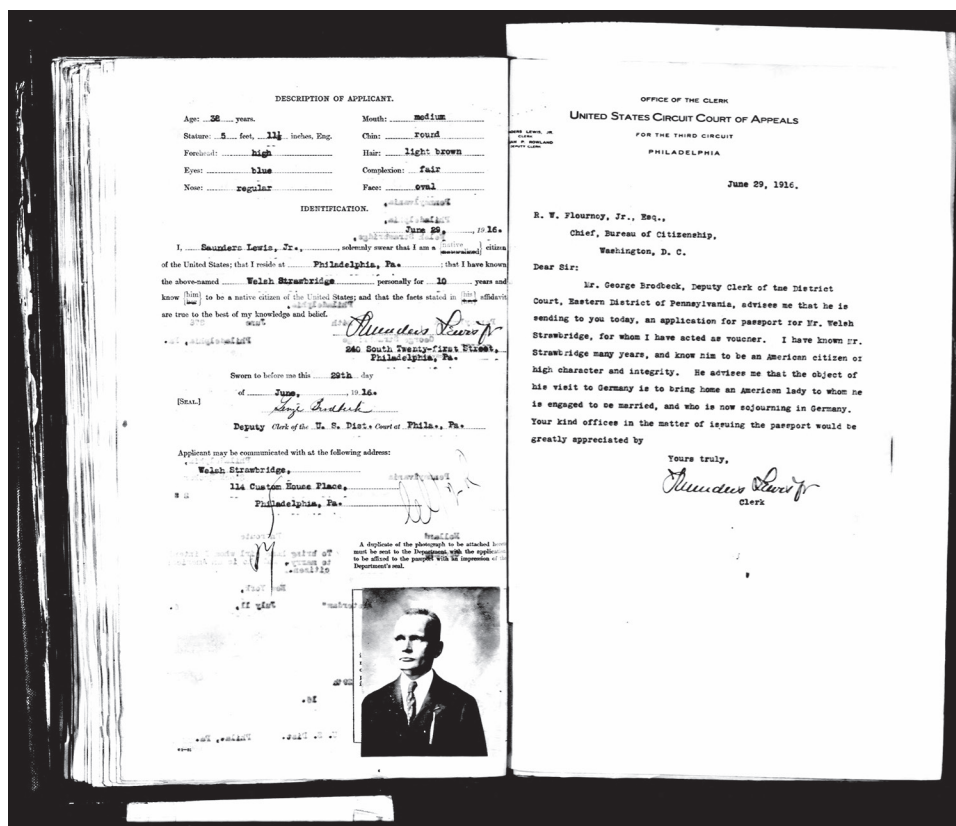 DESCRIPTION OF APPLICANT.
Age: 38 years.
Stature: 5 feet, 11½ inches, Eng.
Forehead: high
Eyes: blue
Nose: regular
Mouth: medium
Chin: round
Hair: light brown
Complexion: fair
Face: oval
IDENTIFICATION.
June 29, 1916.
I, Saunders Lewis, Jr., solemnly swear that I am a {native naturalized} citizen
of the United States; that I reside at Philadelphia, Pa. ; that I have known
the above-named Welsh Strawbridge personally for 10 years and
know {him} to be a native citizen of the United States; and that the facts stated in {his} affidavit
are true to the best of my knowledge and belief.
Saunders Lewis Jr
260 South Twenty-first Street,
Philadelphia, Pa.
Sworn to before me this 29th day
of June, 1916.
[SEAL.]
George Brodbeck
Deputy Clerk of the U. S. Dist. Court at Phila., Pa.
Applicant may be communicated with at the following address:
Welsh Strawbridge,
114 Custom House Place,
Philadelphia, Pa.
A duplicate of the photograph to be attached here
must be sent to the Department with the applicat
to be affixed to the passport with an impression of the
Department's seal.
OFFICE OF THE CLERK
UNITED STATES CIRCUIT COURT OF APPEALS
FOR THE THIRD CIRCUIT
PHILADELPHIA
DERS LEWIS, JR.
CLERK
P. ROWLAND
DEPUTY CLERK
June 29, 1916.
R. W. Flournoy, Jr., Esq.,
Chief, Bureau of Citizenship,
Washington, D. C.
Dear Sir:
Mr. George Brodbeck, Deputy Clerk of the District
Court, Eastern District of Pennsylvania, advises me that he is
sending to you today, an application for passport for Mr. Welsh
Strawbridge, for whom I have acted as voucher. I have known Mr.
Strawbridge many years, and know him to be an American citizen of
high character and integrity. He advises me that the object of
his visit to Germany is to bring home an American lady to whom he
is engaged to be married, and who is now sojourning in Germany.
Your kind offices in the matter of issuing the passport would be
greatly appreciated by
Yours truly,
Saunders Lewis Jr
Clerk